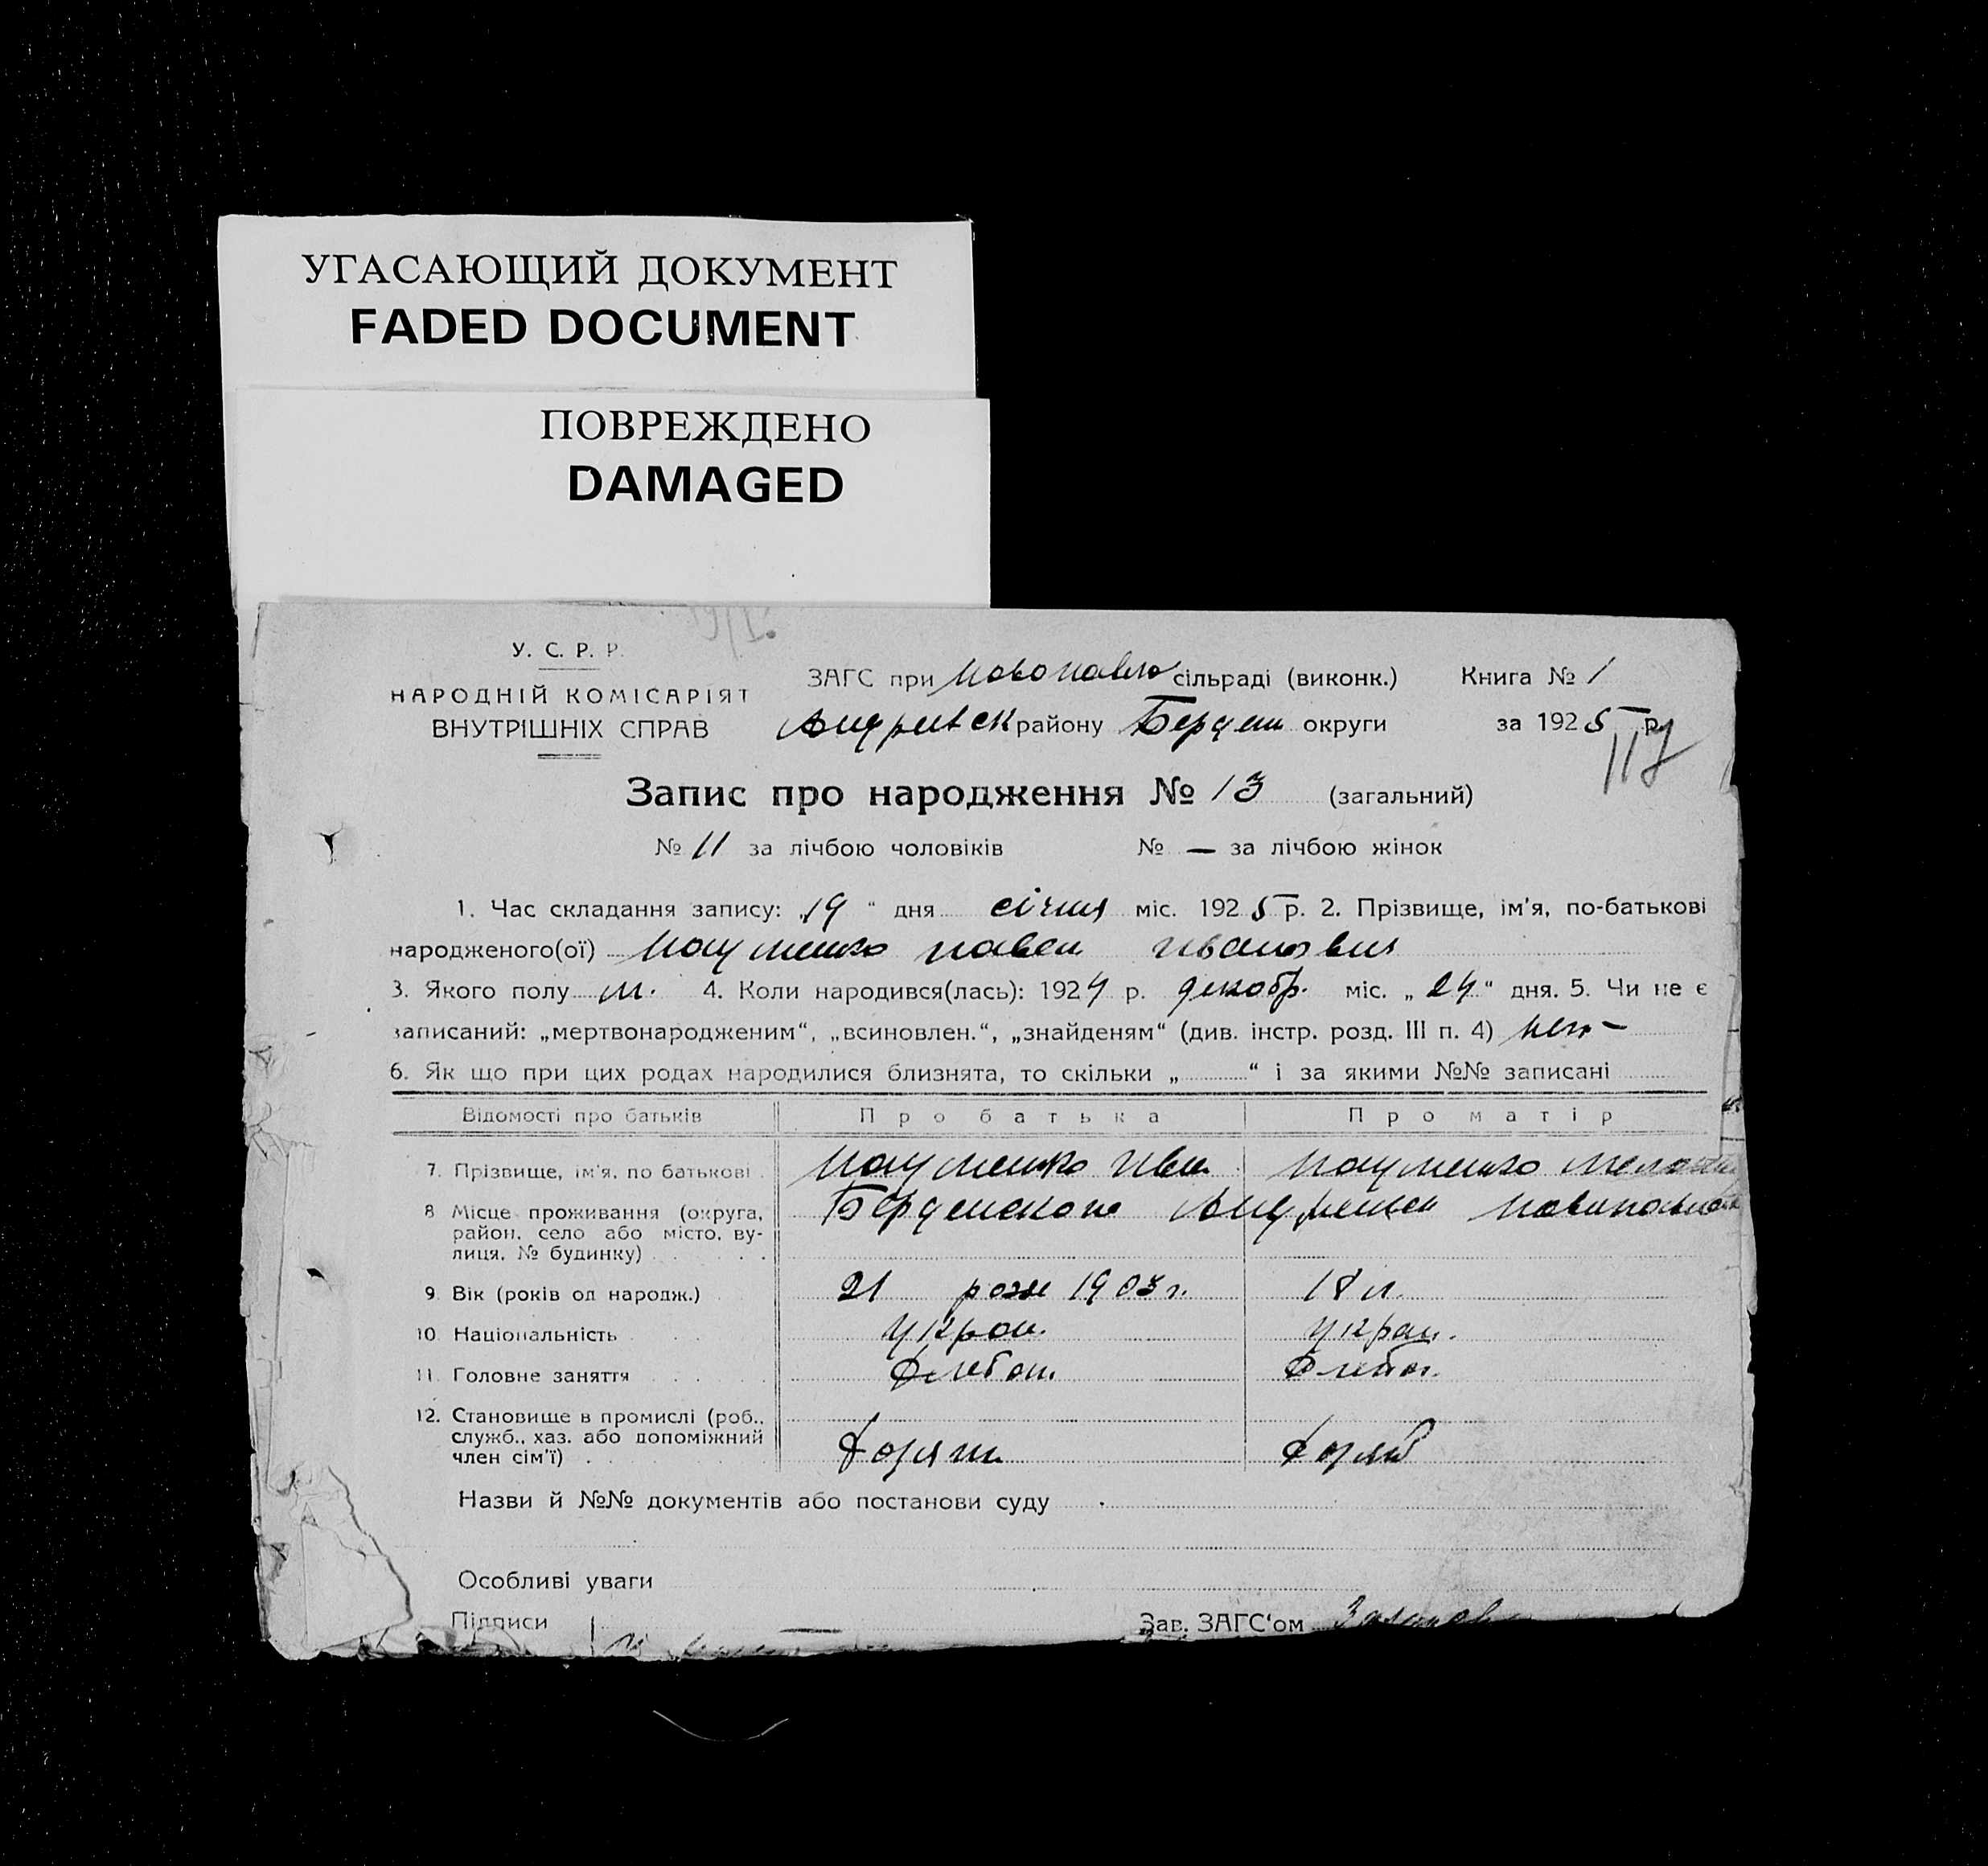 УГАСАЮЩИЙ ДОКУМЕНТ
FADED DOCUMENT
ПОВРЕЖДЕНО
DAMAGED
У. С. Р. Р.
НАРОДНІЙ КОМІСАРІЯТ
ВНУТРІШНІХ СПРАВ
ЗАГС при Новопавло сільраді (виконк.) Книга № 1
Андриевск району Бердян округи за 1925 р.
117
Запис про народження № 13 (загальний)
№ 11 за лічбою чоловіків № — за лічбою жінок
1. Час складання запису: „19“ дня січня міс. 1925 р. 2. Прізвище, ім'я, по-батькові
народженого(ої) Науменко Павел Иванович
3. Якого полу м. 4. Коли народився(лась): 1924 р. декобр. міс. „24“ дня. 5. Чи не є
записаний: „мертвонародженим“, „всиновлен.“, „знайденям“ (див. інстр. розд. III п. 4) нет –
6. Як що при цих родах народилися близнята, то скільки „ “ і за якими №№ записані
Відомості про батьків Про батька Про матір
7. Прізвище, ім'я, по батькові Науменко Иван Науменко
8 Місце проживання (округа, Берденского Андреевск
район, село або місто, ву-
лиця, № будинку)
9 Вік (років од народж.) 21 рожд 1903 г. 18 л.
10 Національність Укран. Укран.
11. Головне заняття Хлебоп. Хлебоп.
12. Становище в промислі (роб.,
служб., хаз. або допоміжний Хозяин
член сім'ї)
Назви й №№ документів або постанови суду
Особливі уваги
Підписи Зав. ЗАГС'ом